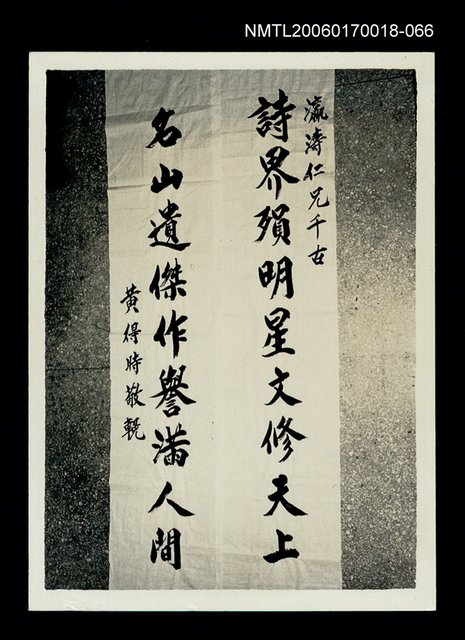 NMTL20060170018-066
瀛濤仁兄千古
詩界殞明星文修天上
名山遺傑作譽滿人間
黃得時敬輓